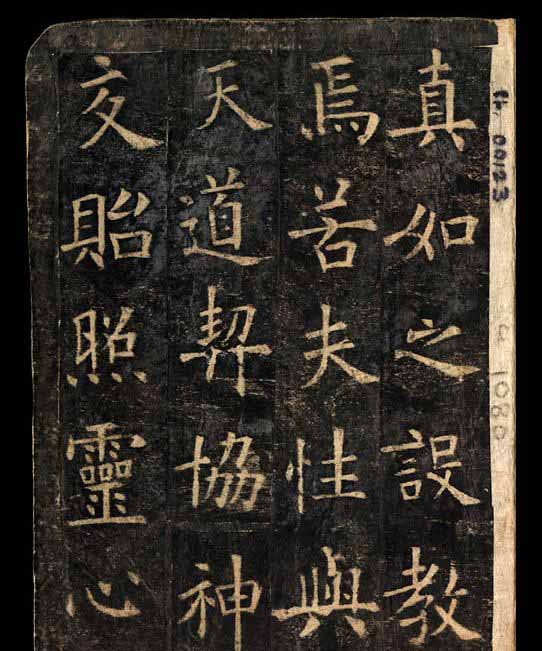 真如之設教
焉若夫性與
天道契協神
交貽照靈心
ch. 00123
1080